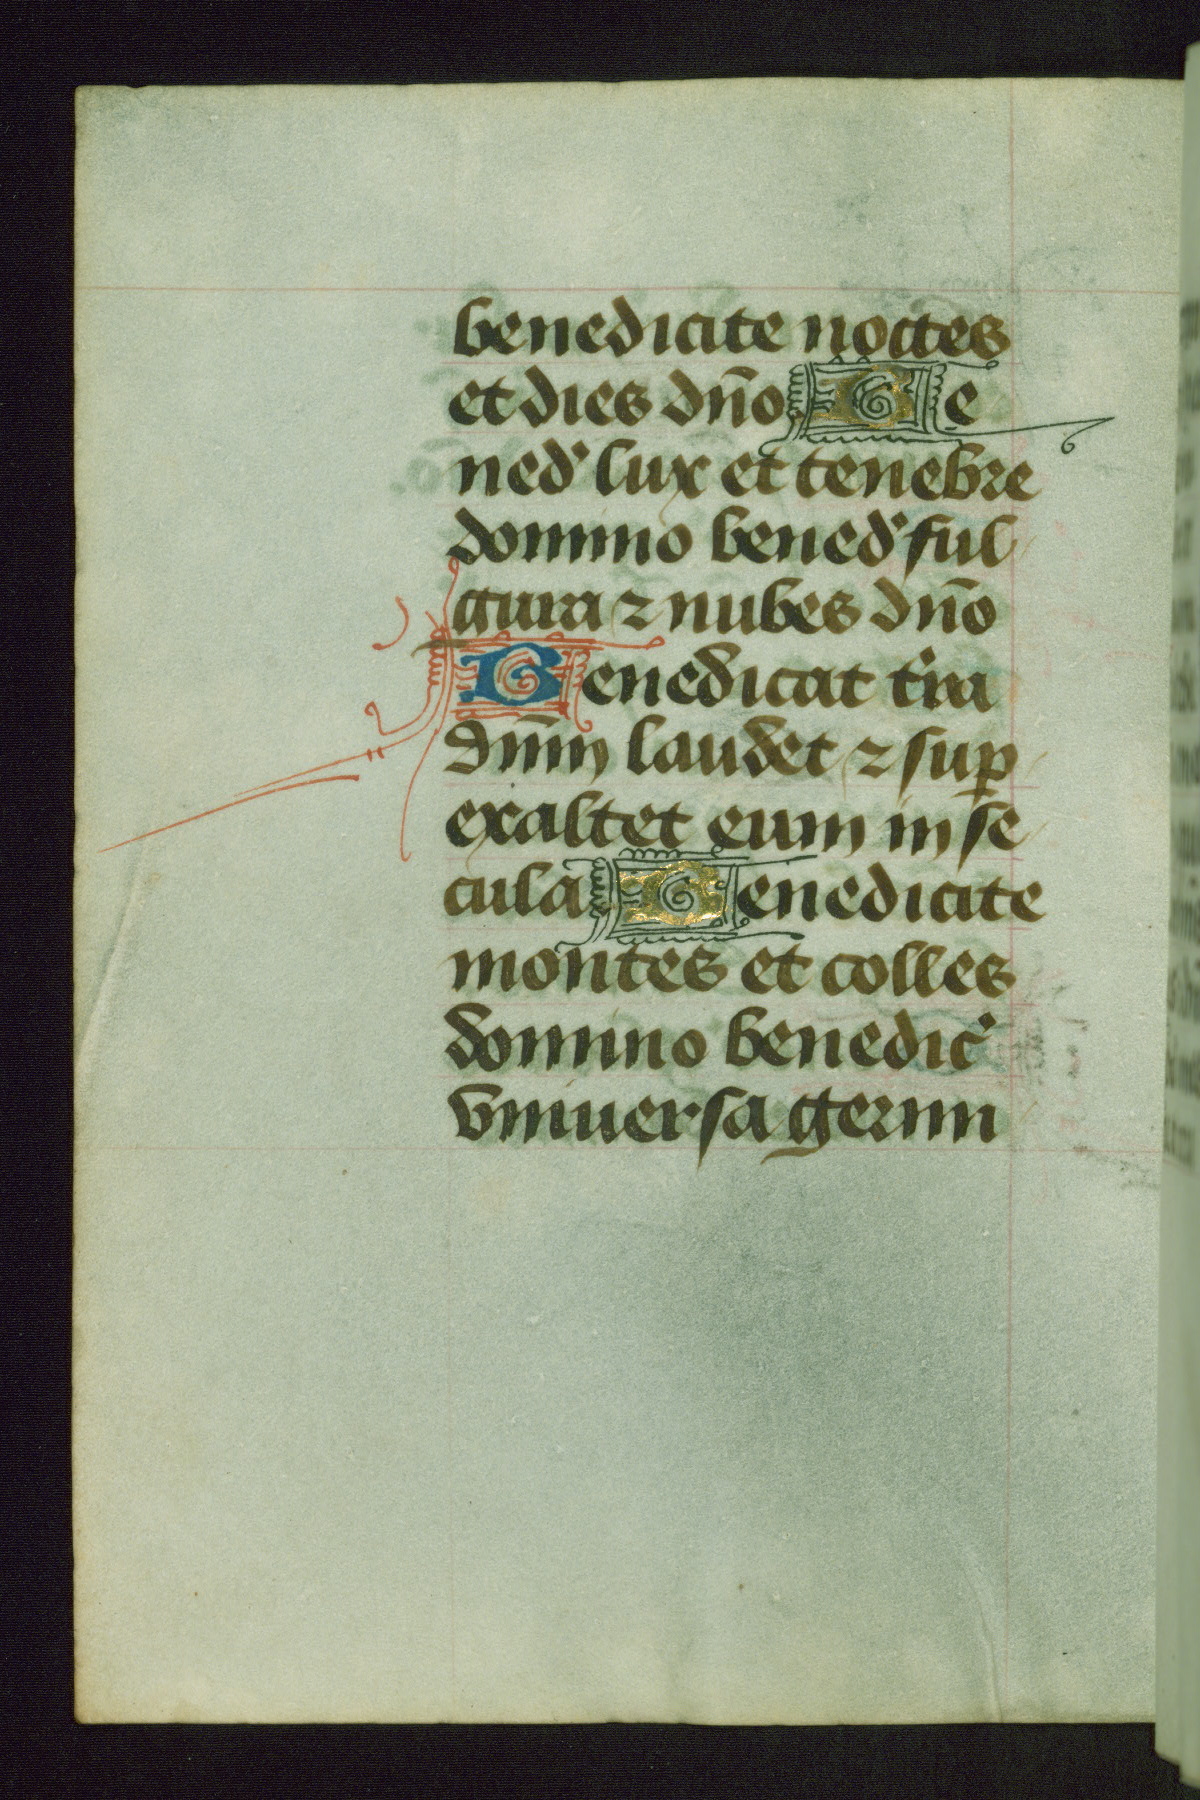 benedicite noctes
et dies dn̄o Be
ned' lux et tenebre
domino bened' ful
gura ⁊ nubes dn̄o
Benedicat t'ra
dn̄m laudet ⁊ sup
exaltet eum in se
cula Benedicite
montes et colles
domino benedic'
vniuersa germi